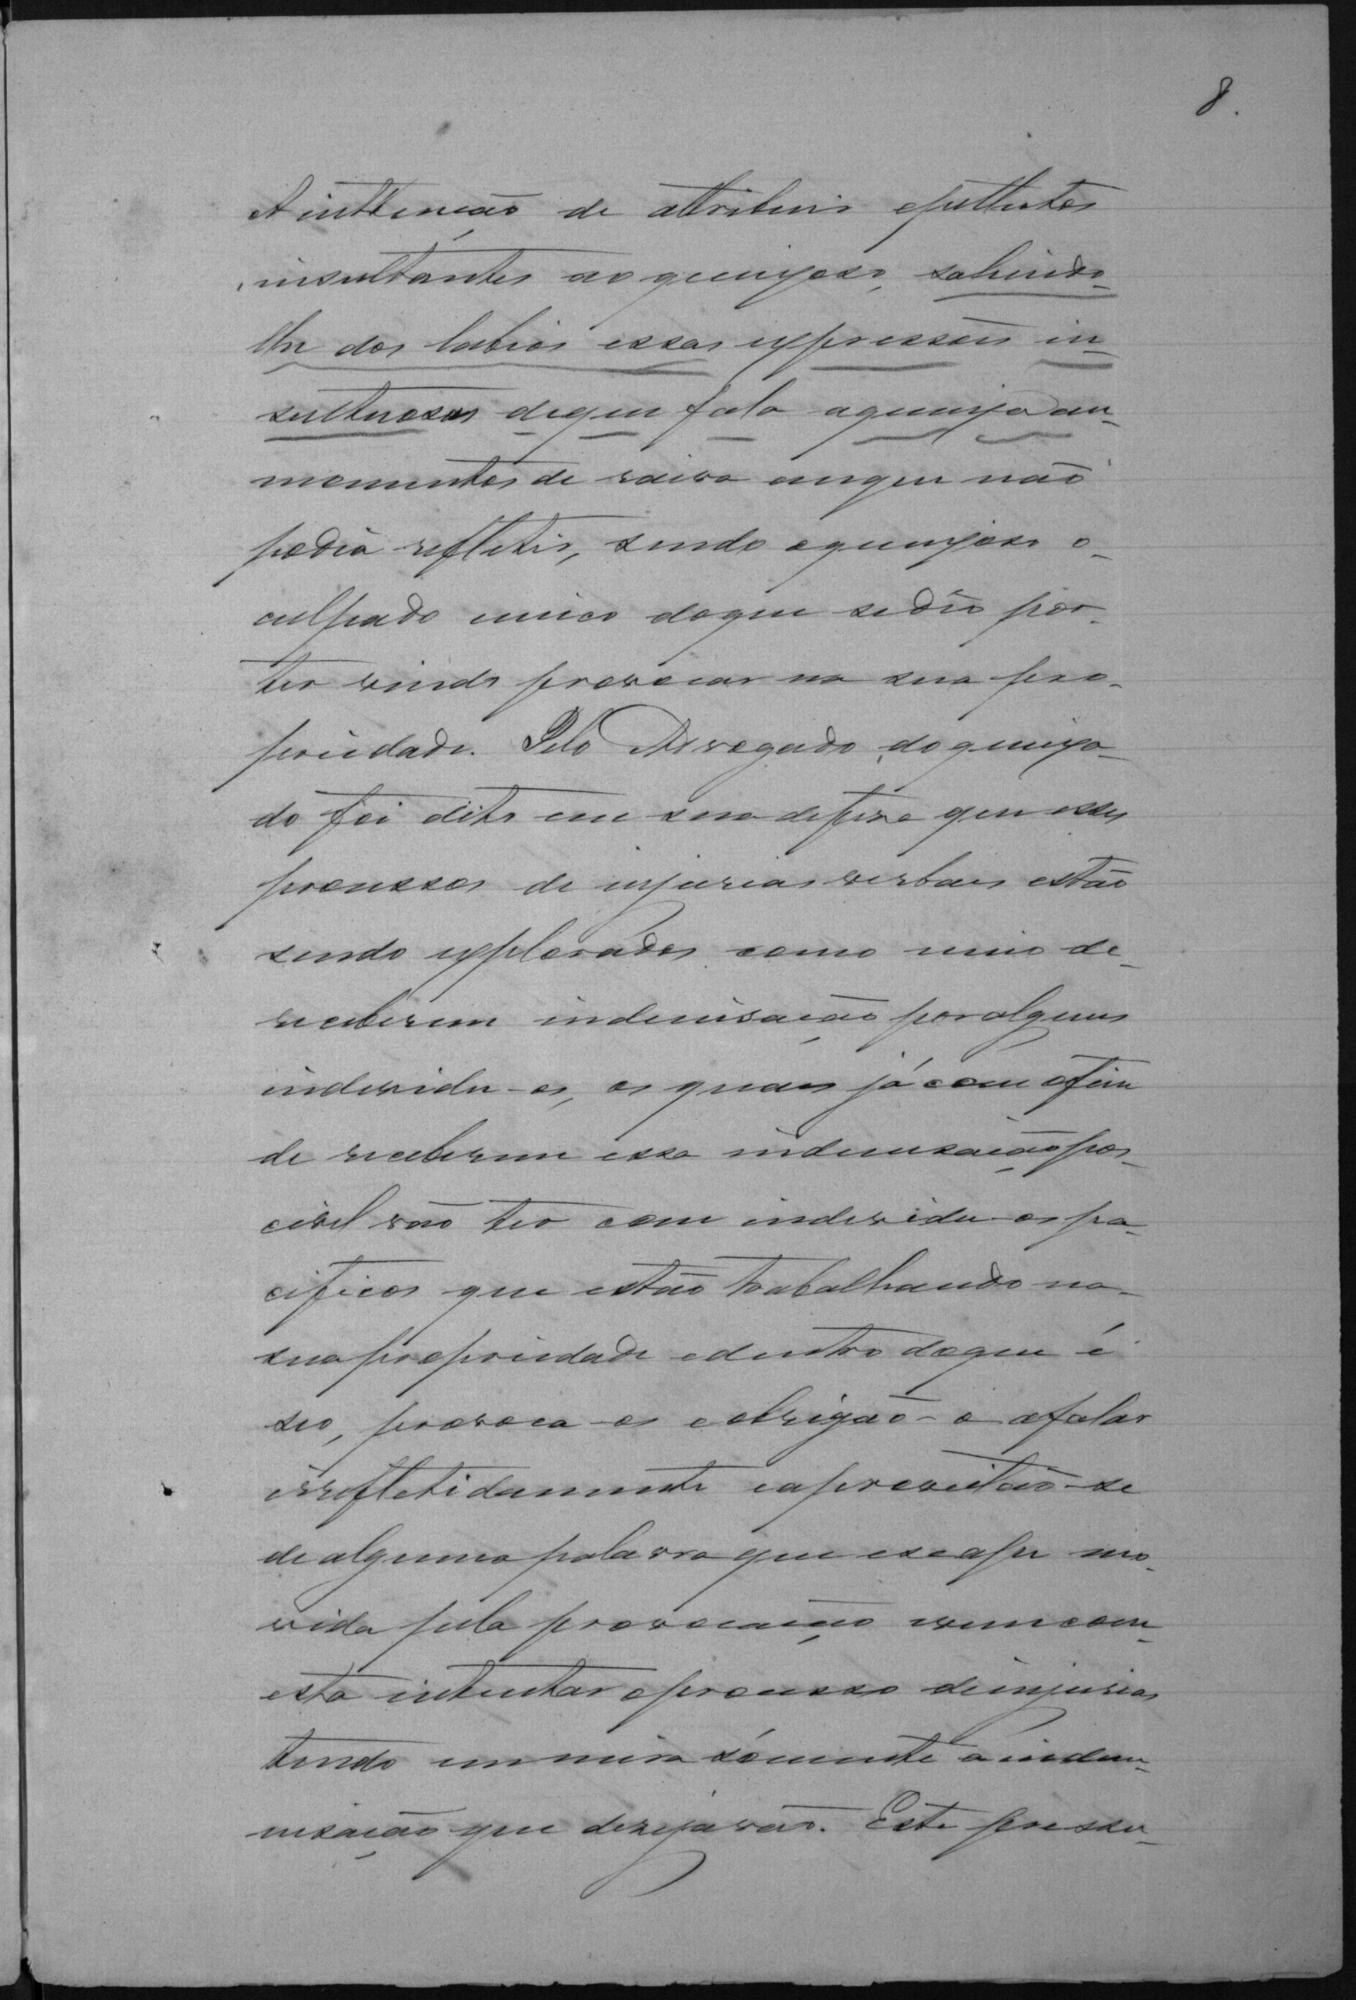 8.
A inttenção de attribuir epithetos
insultantes ao queixoso, sahindo-
lhe dos labios essas expressões in-
sultuosas de que fala a queixa em
momentos de raiva em que não
podia refletir, sendo o queixoso o
culpado unico do que se dio por
ter vindo provocar na sua pro-
priedade. Pelo Advogado do queixa-
do foi dito em sua defeza que esses
processos de injurias verbais estão
sendo explorados como meio de
receberem indenisação por alguns
individu-os, os quais já com o fim
de receberem essa indenisação pos-
civel vão ter com individu-os pa-
cificos que estão trabalhando na
sua propriedade e dentro do que é
seo, provoca-os e obrigão-o a falar
irrefletidamente e aproveitão-se
de alguma palavra que escape mo-
vida pela provocação vem com
esta intentar o processo de injurias
tendo em mira sómente a indem-
nisação que desejavão. Este pressu-